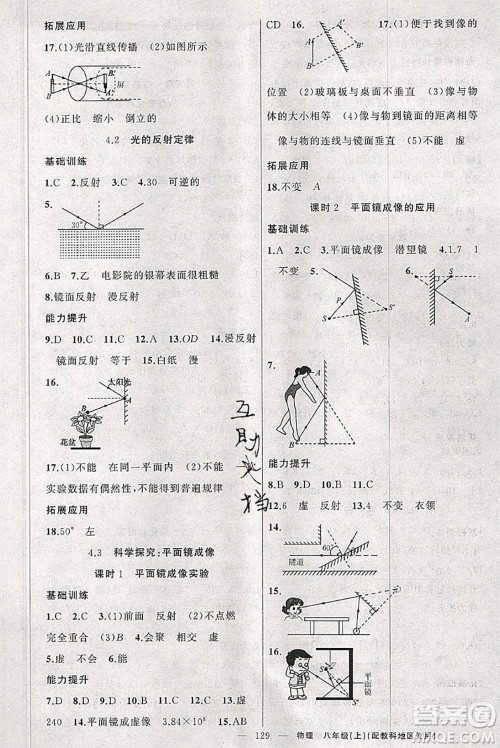 拓展应用
17.(1)光沿直线传播 (2)如图所示
A
B
B'
A'
屏
(4)正比 缩小 倒立的
4.2 光的反射定律
基础训练
1.C 2.反射 3.C 4.30 可逆的
5.
30°
6.B 7.乙 电影院的银幕表面很粗糙
8.镜面反射 漫反射
能力提升
9.D 10.C 11.A 12.B 13.OD 14.漫反射
镜面反射 等于 15.白纸 漫
16.
太阳光
A
B
花盆
17.(1)不能 在同一平面内 (2)不能
实验数据有偶然性,不能得到普遍规律
拓展应用
18.50° 左
4.3 科学探究:平面镜成像
课时1 平面镜成像实验
基础训练
1.C 2.C 3.(1)前面 反射 (2)不点燃
完全重合 (3)B 4.会聚 相交 虚
5.虚 不会 6.A
能力提升
7.D 8.D 9.B 10.C 11.D 12.D 13.虚
240 14.平面镜成像 3.84×10⁸ 15.ABC
CD 16.
A
B
A'
B'
17.(1)便于找到像的
位置 (2)玻璃板与桌面不垂直 (3)像与物
体的大小相等 (4)像与物到镜面的距离相等
像与物的连线与镜面垂直 (5)不能
拓展应用
18.不变 A
课时2 平面镜成像的应用
基础训练
1.A 2.C 3.平面镜成像 潜望镜 4.1.7 1
不变 5.
P
S
S'
6.
S
S'
7.
A
B
能力提升
8.B 9.C 10.C 11.D
12.6 虚 反射 13.不变 衣领
14.
60°
隧道
15.
D
16.
平面镜
互助文档
129
物理 八年级(上)(配教科地区使用)
答案圈